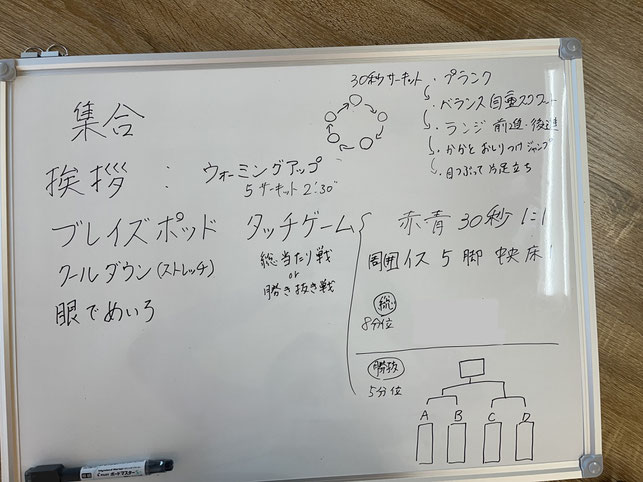 集合
挨拶 : ウォーミングアップ
5サーキット 2'30"
30秒サーキット
・プランク
・バランス自重スクワット
・ランジ 前進・後進
・かかとおしりつけジャンプ
・目つぶって片足立ち
ブレイズポッド タッチゲーム
総当たり戦
or
勝き抜き戦
赤青 30秒 1:1
周囲イス 5脚 中央床1
総
8分位
勝抜
5分位
A B C D
クールダウン(ストレッチ)
眼でめいろ
ボードマスター